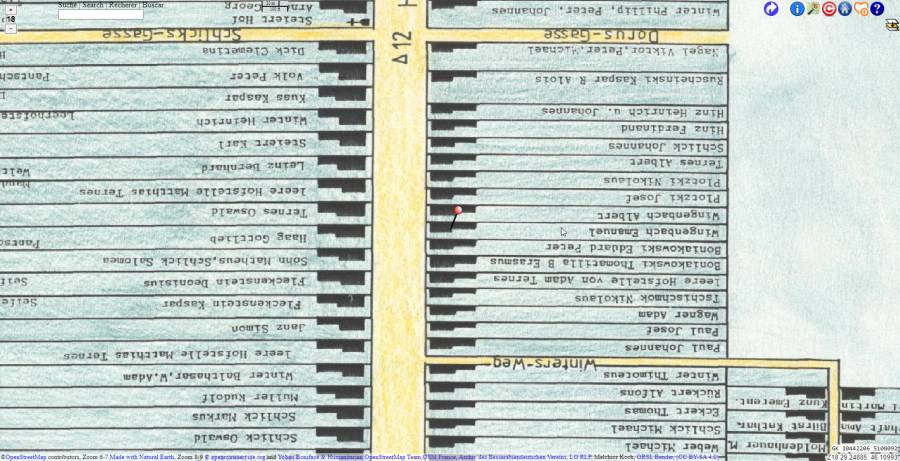 Suche | Search | Recherer | Buscar
18
Arnt Georg
Steiert Hof
Winter Phillip, Peter, Johannes
Schlicks-Gasse
A12
Dorus-Gasse
Dick Clementina
Volk Peter
Kuss Kaspar
Winter Heinrich
Steiert Karl
Leinz Bernhard
leere Hofstelle Matthias Ternes
Ternes Oswald
Haag Gottlieb
Sohn Matheus, Schlick Salomea
Fleckenstein Deonisius
Fleckenstein Kaspar
Janz Simon
leere Hofstelle Matthias Ternes
Winter Balthasar, W.Adam
Müller Rudolf
Schlick Markus
Schlick Oswald
Nagel Viktor, Peter, Michael
Ruscheinski Kaspar R Alois
Hinz Heinrich u. Johannes
Hinz Ferdinand
Schlick Johannes
Ternes Albert
Ploczki Nikolaus
Ploczki Josef
Wingenbach Albert
Wingenbach Emanuel
Boniakowski Eduard Peter
Boniakowski Thomatilla B Erasmus
leere Hofstelle von Adam Ternes
Tschischmok Nikolaus
Wagner Adam
Paul Josef
Paul Johannes
Winters-Weg
Winter Thimoteus
Rückert Alfons
Eckert Thomas
Schlick Michael
Weber Michael
Kunz Emerent.
Birnt Kathr.
Moldenhauer M.
Martin
GK 10442206 5106092
Z18 29.24885, 46.10993
©OpenStreetMap contributors, Zoom 6-7 Made with Natural Earth, Zoom 8-9 © opencyclemap.org and Yohan Boniface & Humanitarian OpenStreetMap Team OSM France, Archiv des Bessarabiendeutschen Vereins, LO RLP, Melchior Koch, ORSL Bender, (CC-BY-SA 4.0)